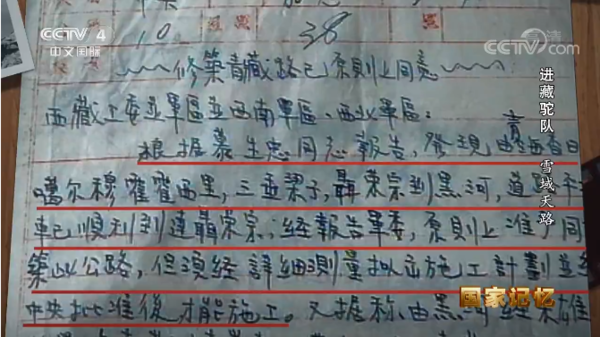 CCTV 4
中文国际
CCTV.com
清
10
38
修築青藏路已原則上同意
西藏工委並軍區並西南軍區、西北軍區：
根據慕生忠同志報告，發現由青海省自
噶尔穆霍霍西里，三座梁子，聶榮宗到黑河，道路平
車已順利到達聶榮宗；經報告軍委，原則上准予同
築此公路，但須経詳細測量拟定施工計劃並経
中央批准後才能施工。又据称由黑河経
进藏驼队
雪域天路
国家记忆